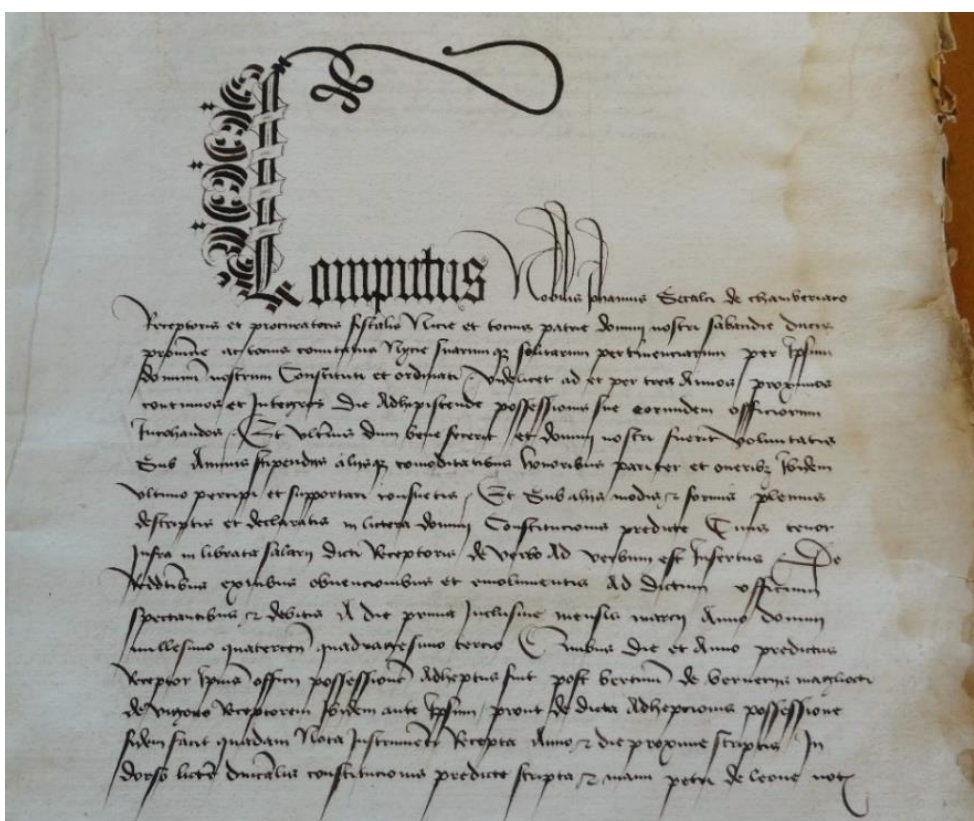 Computus Nobilis Johannis Secalci de chamberiaco
Receptoris et procuratoris fiscalis Nicie et tocius patrie domini nostri sabaudie ducis
provincie ac tocius comitatus Nycie suarumque solitarum pertinenciarum per Ipsum
dominum nostrum Constituti et ordinati Videlicet ad et per tres Annos proximos
continuos et Integros Die Adhepiscende possessionis sue eorumdem officiorum
Inchohandos Et Ulterius dum bene fecerit et domini nostri fuerit Voluntatis
Sub Annuis stipendiis aliisque comoditatibus honoribus pariter et oneribus Ibidem
ultimo percipi et supportari consuetis Et Sub aliis modis et formis plenius
descriptis et declaratis in lictera domini Constitucionis predicte Cuius tenor
Infra in libratis salarii dicti Receptoris de verbo Ad verbum est Insertus De
Redditibus exitibus obvencionibus et emolimentis Ad dictum officium
spectantibus et debitis A die prima Inclusive mensis marcii Anno domini
millesimo quatercen quadragesimo tercio Quibus die et Anno predictus
Receptor Ipsius officii possessionem Adheptus fuit post de
de Receptorem Ibidem ante Ipsum prout de dicta Adhepcionis possessione
fidem facit quadam Nota Instrumenti Recepta Anno et die proxime scriptis In
dorso lictere ducalis constitucionis predicte scripta et manu petri de leone not